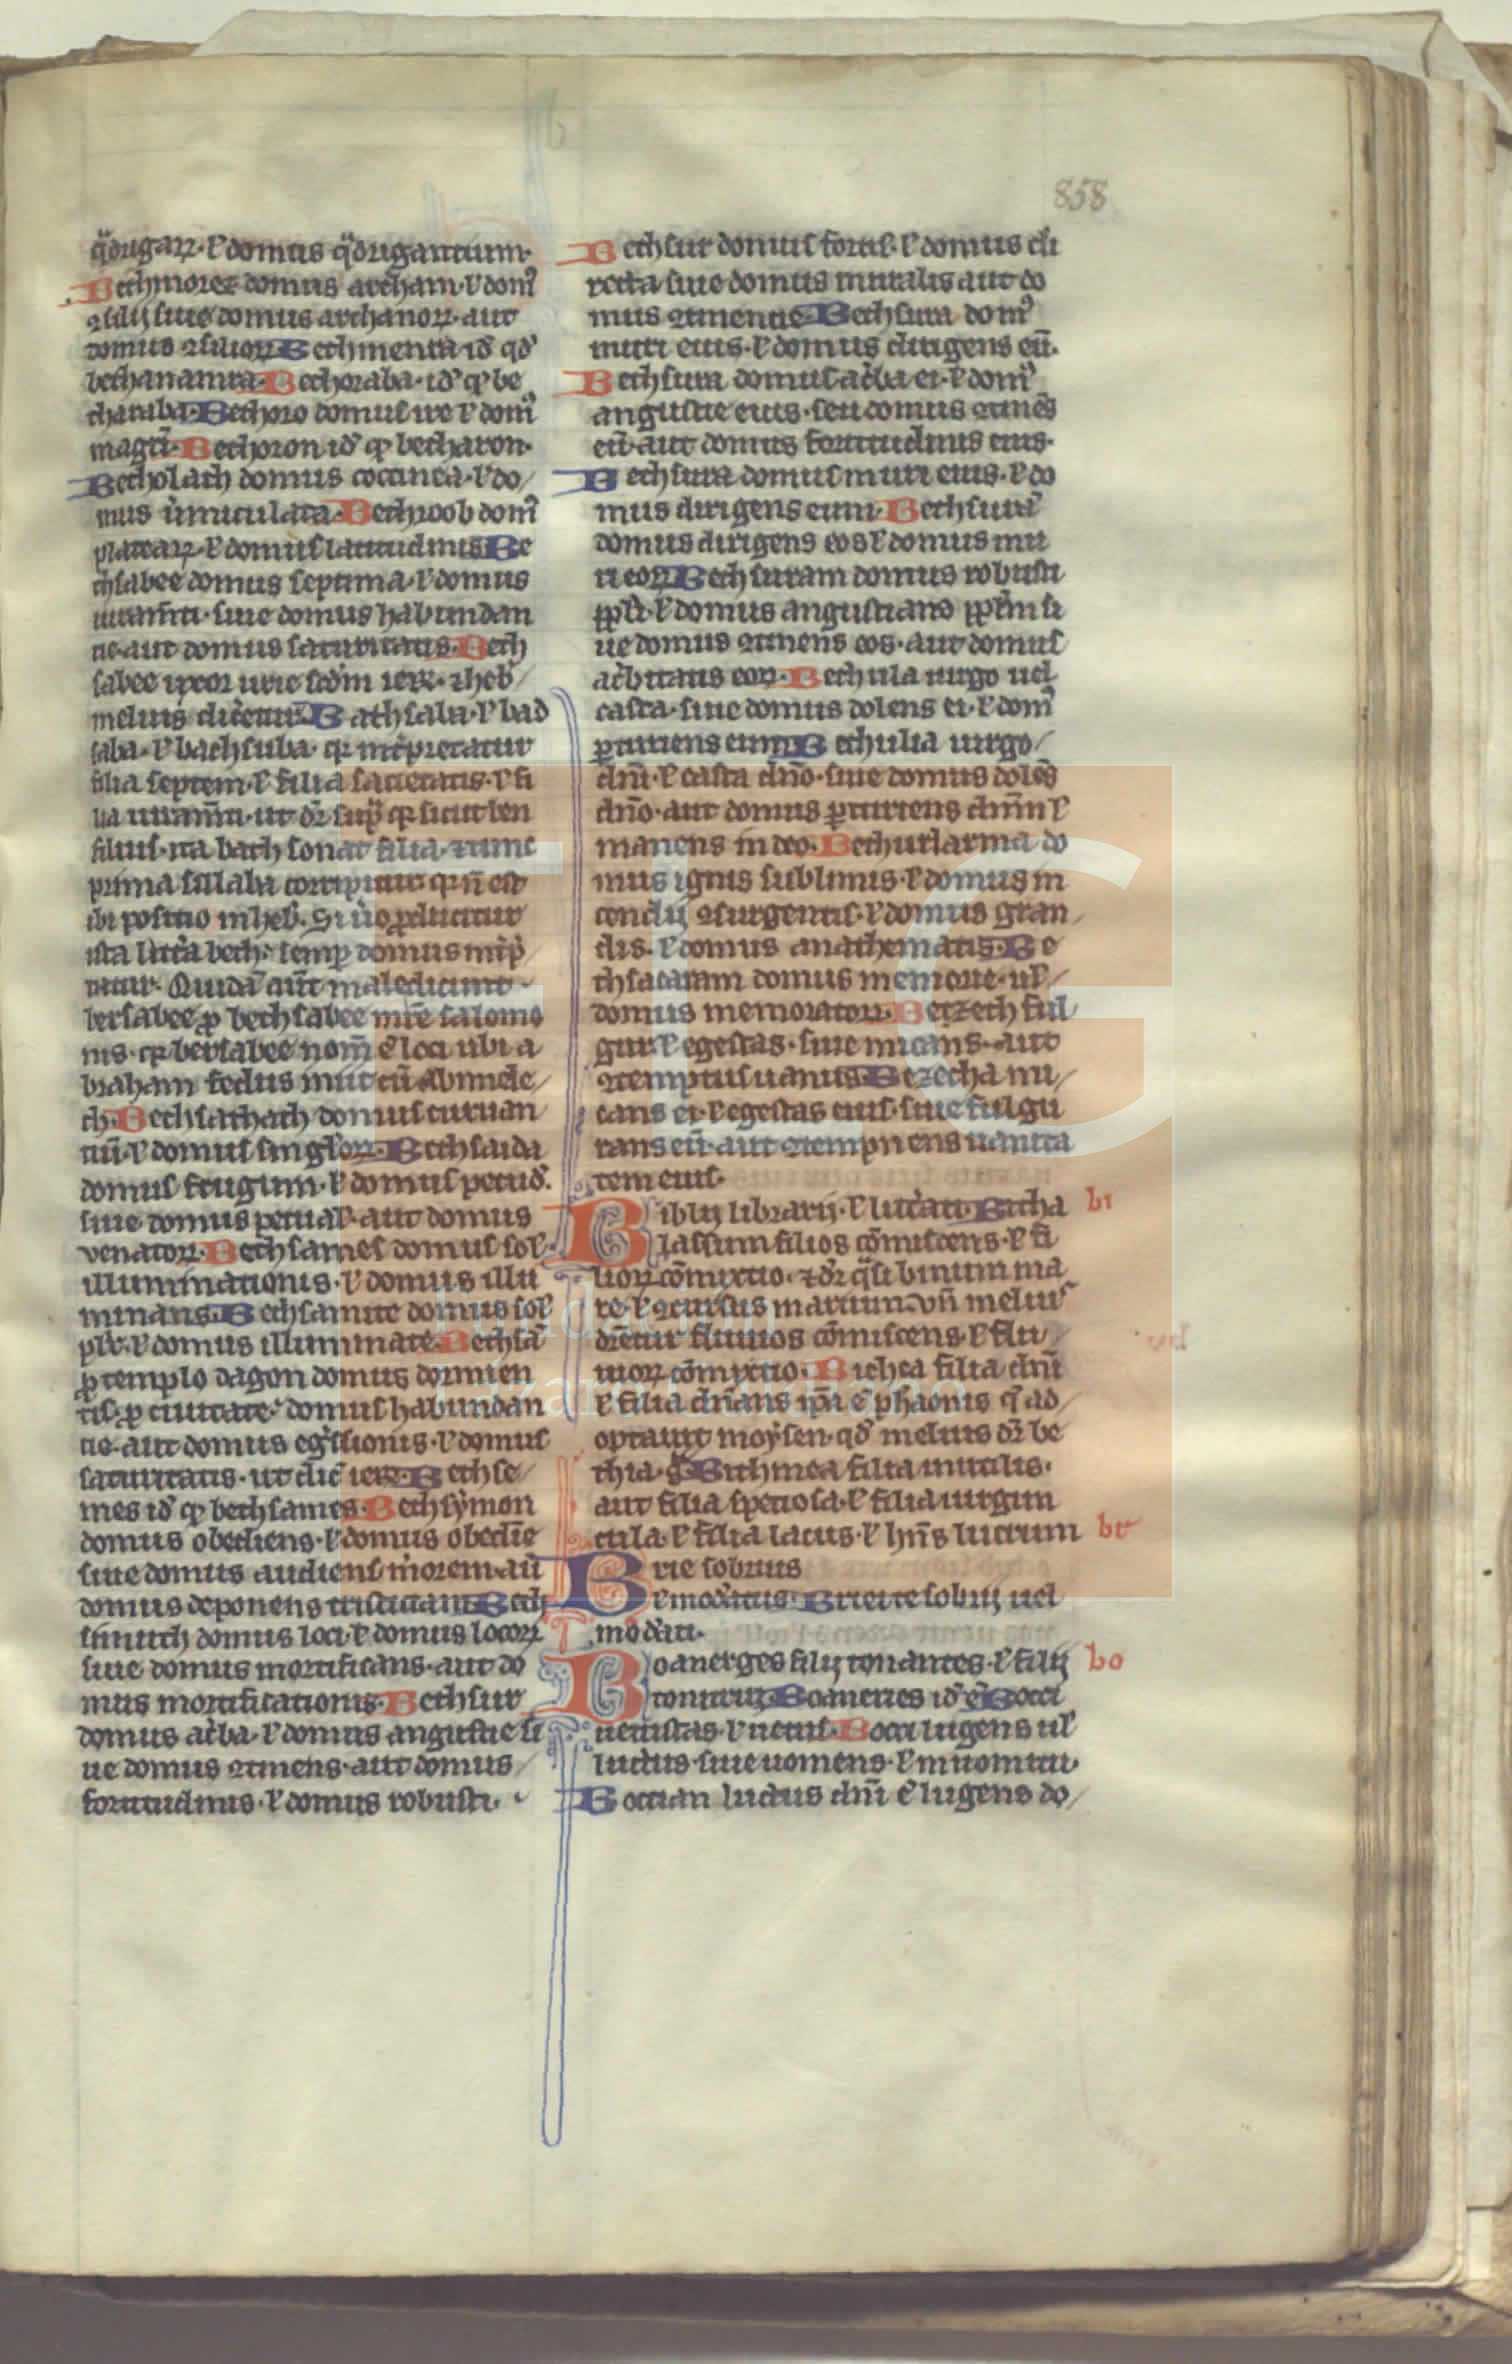 858
q̃drigaꝝ · ł domus q̃drigantium ·
Bethmoreet domus archam · ł domꝰ
ꝯsilij siue domus archanoꝝ · aut
domus ꝯsilioꝝ Bethmenta id̾ qd̾
bethanamra · Bethoraba · id̾ qͥ be
tharaba · Bethoro domus ire ł domꝰ
magn̄i · Bethoron id̾ qͥ betharon ·
Betholath domus coccinea · ł do
mus u̾miculata · Bethroob domꝰ
plateaꝝ · ł domus latitudinis Be
thsabee domus septima · ł domus
iuram̄ti · siue domus habundan
tie · aut domus saturitatis · Beth
sabee uxor urie scd̾m ier̄ · ⁊ heb̾
melius dicetur · Bathsaba · ł bad
saba · ł bathsuba · qͥ int̾pretatur
filia septem · ł filia sacietatis · ł fi
lia iuram̄ti · ut dr̄ sup̾ qͥ sicut ben
filius · ita bath sonat filia · ⁊ tunc
prima sillaba corripitur qͥ n̄ est
ibi positio in heb̾ · Si u̾o ꝓducitur
ista litt̾a beth · semꝑ domus int̾p̾
tatur · Quidā aūt maledicunt
bersabee ꝓ bethsabee mr̄e salomo
nis · qͥ bersabee nom̄ ē loci ubi a
braham fedus iniit cū abimele
ch · Bethsathach domus curuan
tiū · ł domus singłoꝝ · Bethsaida
domus frugum · ł domus pecud̾ ·
siue domus pecual̾ · aut domus
venatoꝝ · Bethsames domus sol̾
illuminationis · ł domus illu
minans · Bethsamite domus sol̾
plr̄ · ł domus illuminate · Bethsā
ꝓ templo dagon domus dormien
tis · ꝓ ciuitate · domus habundan
tie · aut domus egs̾sionis · ł domus
saturitatis · ut dic̄ ier̄ · Bethse
mes id̾ qͥ bethsames · Bethsymon
domus obediens · ł domus obedīe
siue domus audiens m̾orem · aū
domus deponens tristiciam · Beth
simuth domus loci · ł domus locoꝝ
siue domus mortificans · aut do
mus mortificationis · Bethsur
domus ac̾ba · ł domus angustie si
ue domus ꝯtinens · aut domus
fortitudinis · ł domus robusti ·
Bethsur domus fortis · ł domus di
recta siue domus muralis aut do
mus ꝯtinentie · Bethsura domꝰ
muri eius · ł domus dirigens eū ·
Bethsura domus ac̾ba ei · ł domꝰ
angustie eius · seu domus ꝯtinēs
eū · aut domus fortitudinis eius ·
Bethsura domus muri eius · ł do
mus dirigens eum · Bethsura
domus dirigens eos ł domus mu
ri eoꝝ Bethsuram domus robusti
pp̄li · ł domus angustians pp̄lm si
ue domus ꝯtinens eos · aut domus
ac̾bitatis eoꝝ · Bethula uirgo uel
casta · siue domus dolens ei · ł domꝰ
ꝑturiens eum Bethulia uirgo
dn̄i · ł casta dn̄o · siue domus dolēs
dn̄o · aut domus ꝑturiens dn̄m ł
manens in deo · Bethurlarma do
mus ignis sublimis · ł domus in
cendij ꝯsurgentis · ł domus gran
dis · ł domus anathematis · Be
thsacaram domus memorie · ul̾
domus memoratoꝝ · Betzeth ful
gur ł egestas · siue micans · aut
ꝯtemptus uanus Bezecha mi
cans ei · ł egestas eius · siue fulgu
rans eū · aut ꝯtempnens uanita
tem eius ·
Biblij librarij · ł lit̾ati · Bicha
lassum filios cōmiscens · ł fi
lioꝝ cōmixtio · ⁊ dr̄ qͣsi binum ma
re · ł ꝯcursus marium · vn̄ meliꝰ
dr̄etur fluuios cōmiscens · ł flu
uioꝝ cōmixtio · Bichea filia dn̄i
ł filia dn̄ans ip̄a ē phaonis qͥ ad
optauit moysen · qd̾ melius dr̄ be
thia · Bithmea filia inutilis ·
aut filia speciosa · ł filia uirgun
cula · ł filia lacus · ł hn̄s luctum
Brie sobrius
ł mod̾atus · Brieite sobrij uel
mod̾ati ·
Boanerges filij tonantes · ł filij
tonitrui · Boaneries id̾ ē Bocci
uetustas · ł uetus · Bocci lugens ul̾
luctus siue uomens · ł in uomitu ·
Boccian luctus dn̄i ē lugens do
bi
br
bo
FLG
Fundación
Lázaro Galdiano